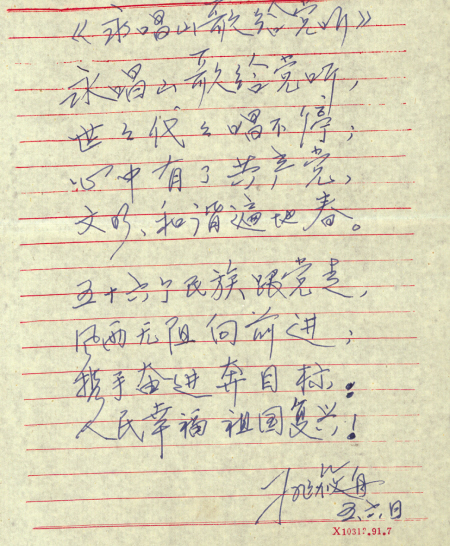 《永唱山歌给党听》
永唱山歌给党听,
世々代々唱不停;
心中有了共产党,
文明、和谐遍地春。
五十六个民族跟党走,
风雨无阻向前进;
携手奋进奔目标:
人民幸福祖国复兴!
五.六日
X10312.91.7